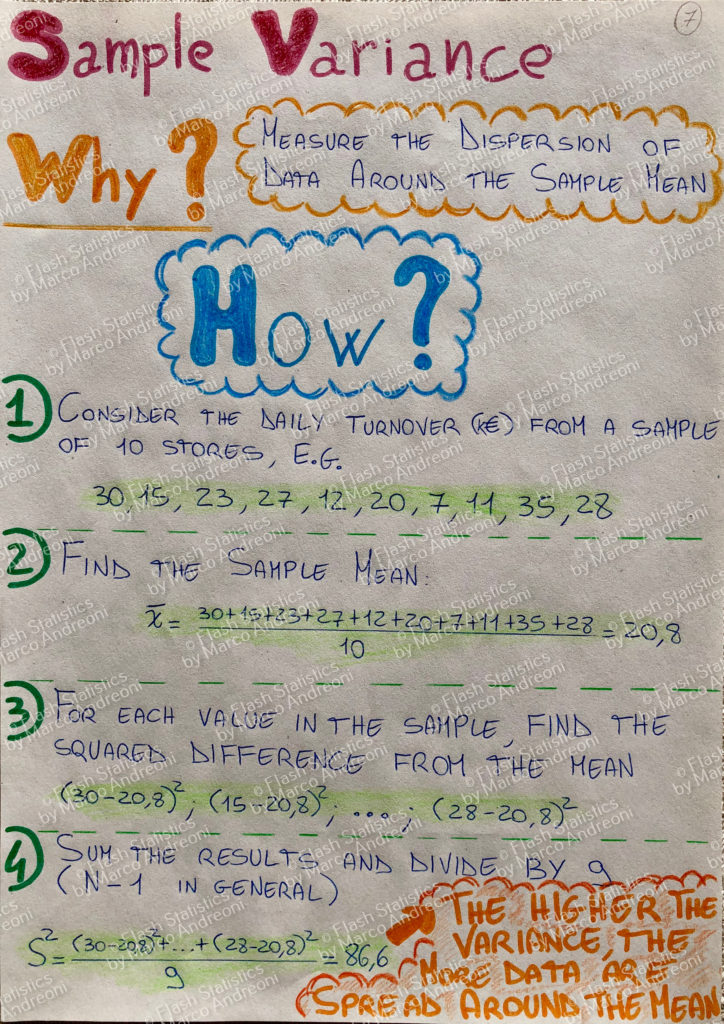 7
Sample Variance
Why?
MEASURE THE DISPERSION OF
DATA AROUND THE SAMPLE MEAN
HOW?
1 CONSIDER THE DAILY TURNOVER (K€) FROM A SAMPLE
OF 10 STORES, E.G.
30, 15, 23, 27, 12, 20, 7, 11, 35, 28
2 FIND THE SAMPLE MEAN:
x̄ = 30+15+23+27+12+20+7+11+35+28 = 20,8
10
3 FOR EACH VALUE IN THE SAMPLE, FIND THE
SQUARED DIFFERENCE FROM THE MEAN
(30-20,8)²; (15-20,8)²; ...; (28-20,8)²
4 SUM THE RESULTS AND DIVIDE BY 9
(N-1 IN GENERAL)
S² = (30-20,8)²+...+(28-20,8)² = 86,6
9
THE HIGHER THE
VARIANCE, THE
MORE DATA ARE
SPREAD AROUND THE MEAN
© Flash Statistics
by Marco Andreoni